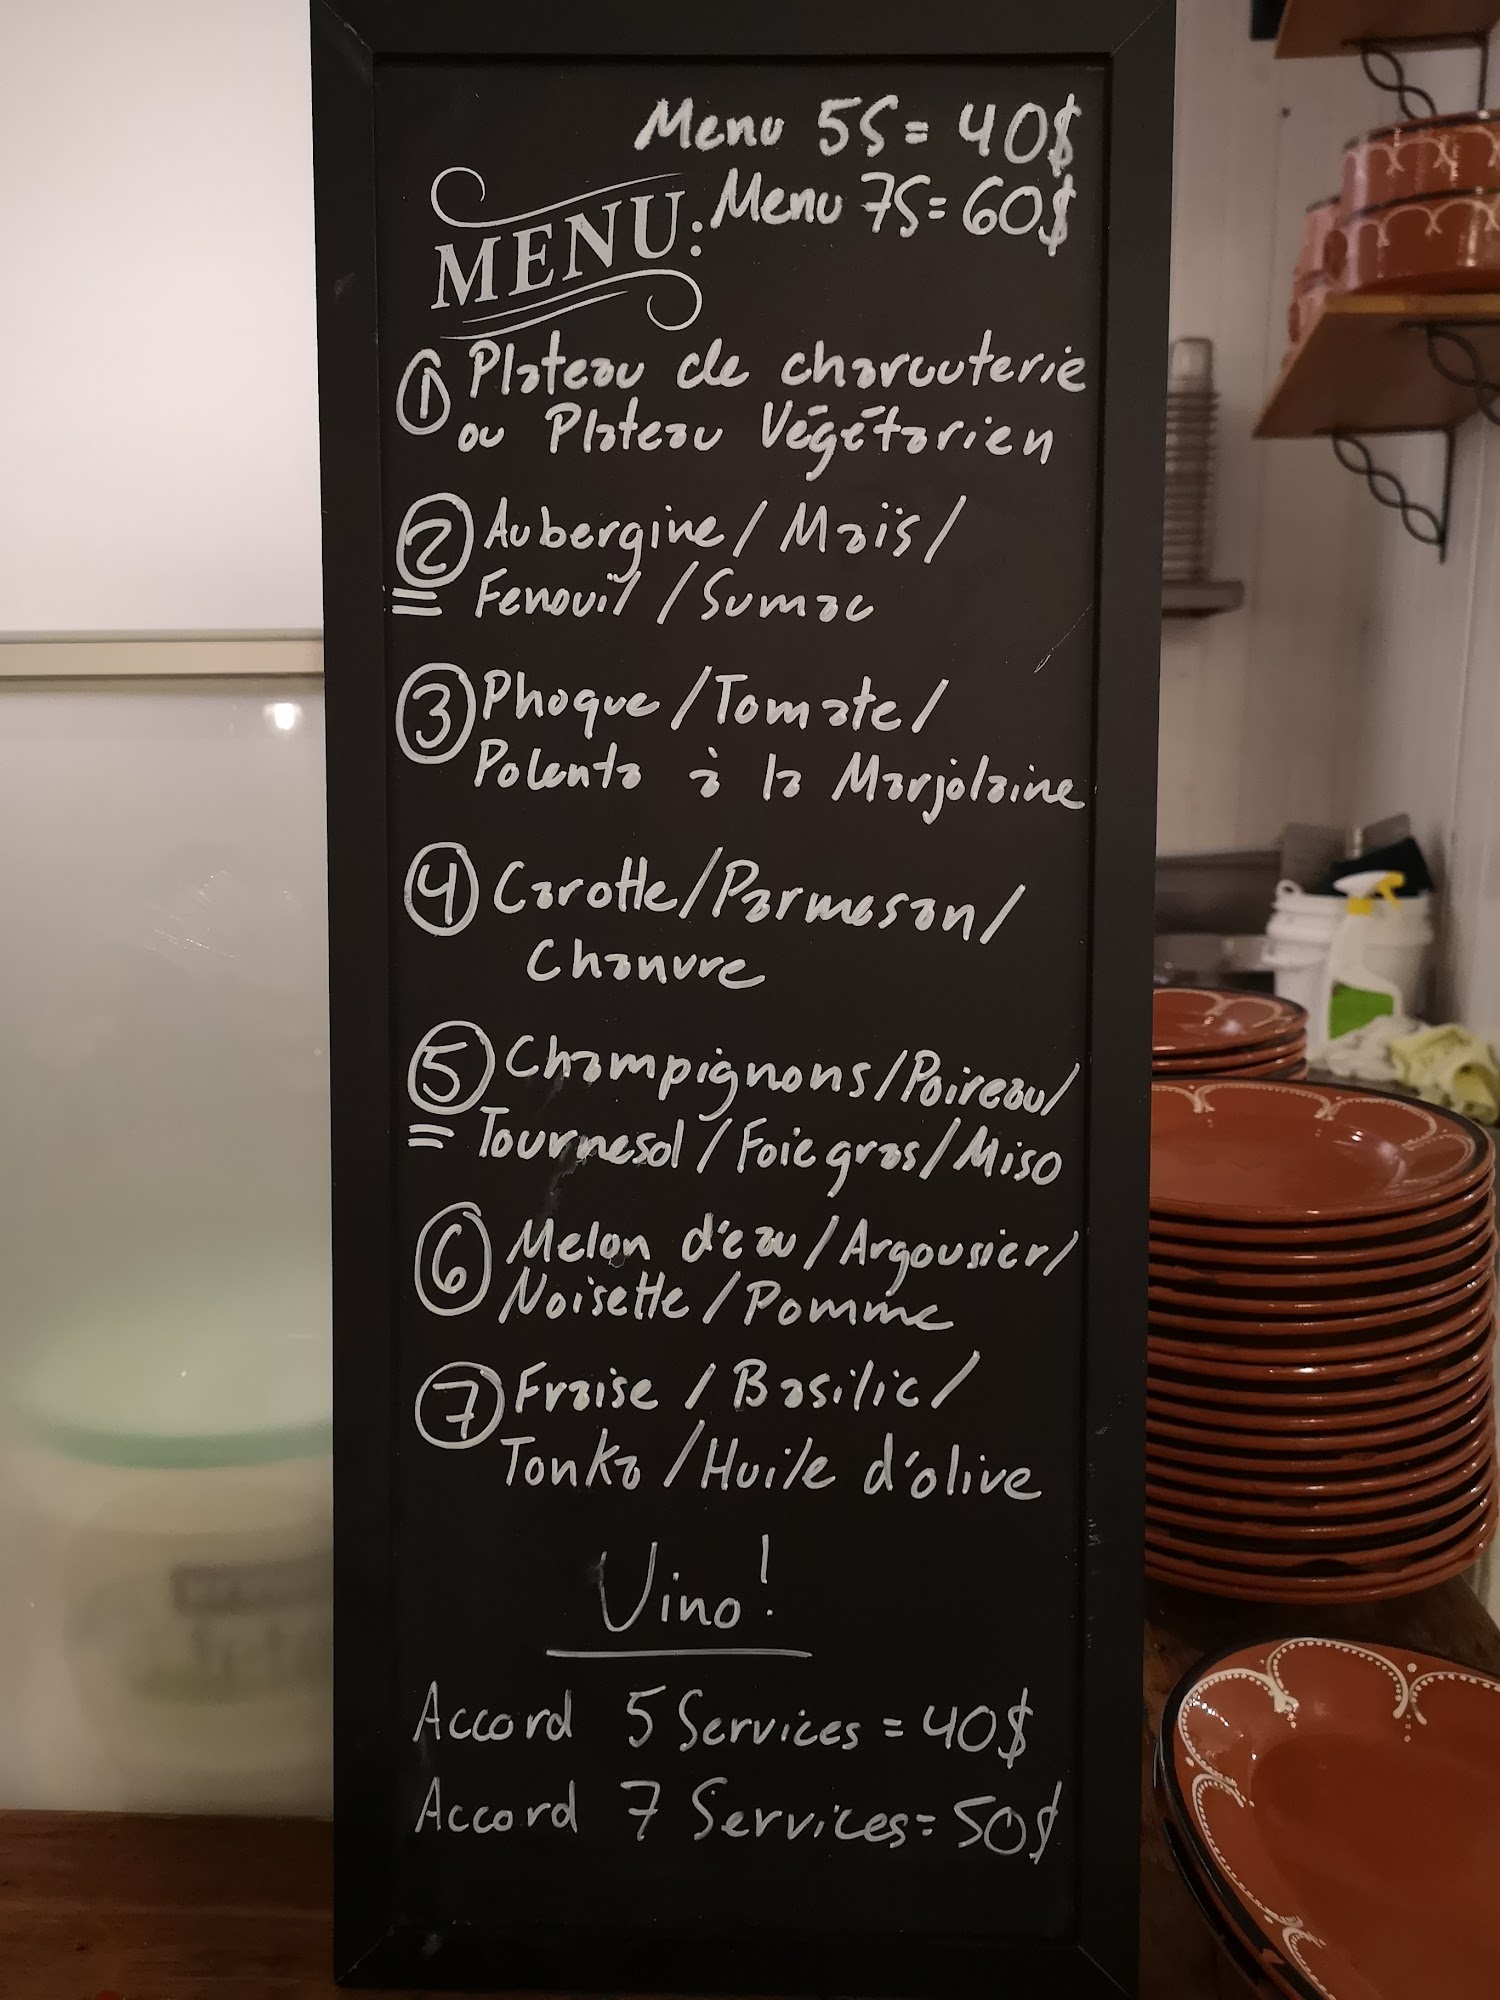 Menu 5S = 40$
Menu 7S = 60$
MENU:
① Plateau de charcuterie
ou Plateau Végétarien
② Aubergine / Maïs /
Fenouil / Sumac
③ Phoque / Tomate /
Polenta à la Marjolaine
④ Carotte / Parmesan /
Chanvre
⑤ Champignons / Poireau /
Tournesol / Foie gras / Miso
⑥ Melon d'eau / Argousier /
Noisette / Pomme
⑦ Fraise / Basilic /
Tonka / Huile d'olive
Vino!
Accord 5 Services = 40$
Accord 7 Services = 50$